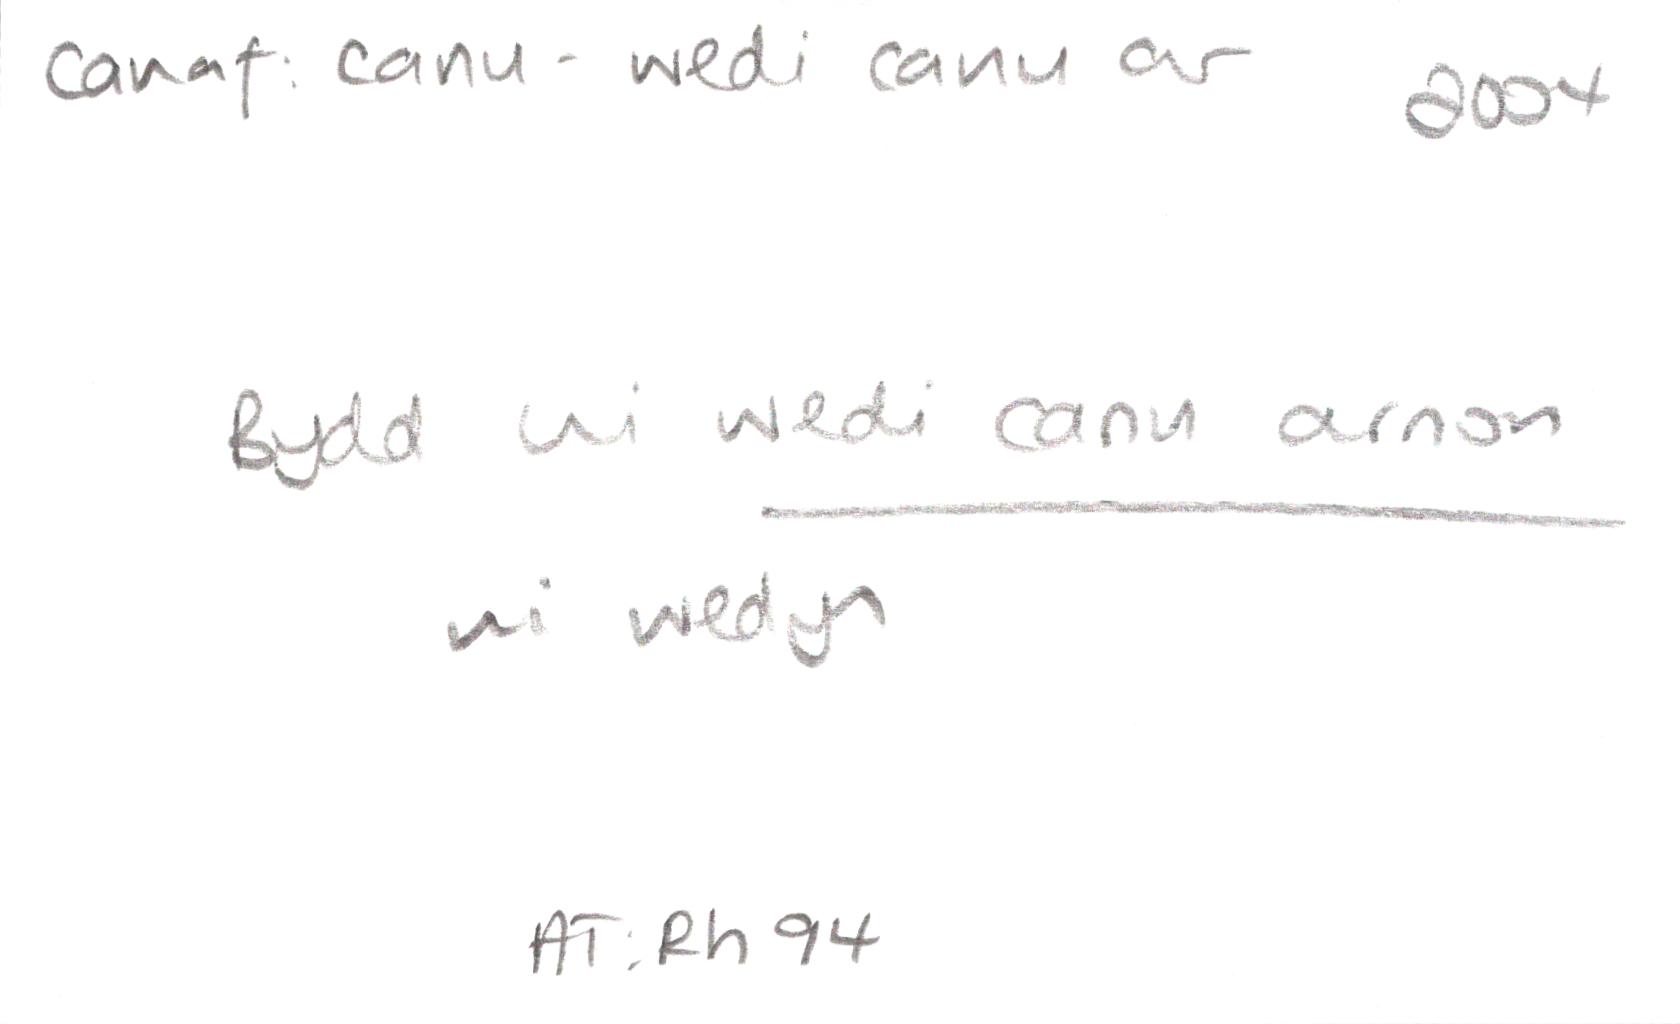 canaf: canu - wedi canu ar 2004
Bydd hi wedi canu arnon
ni wedyn
AT: Rh 94